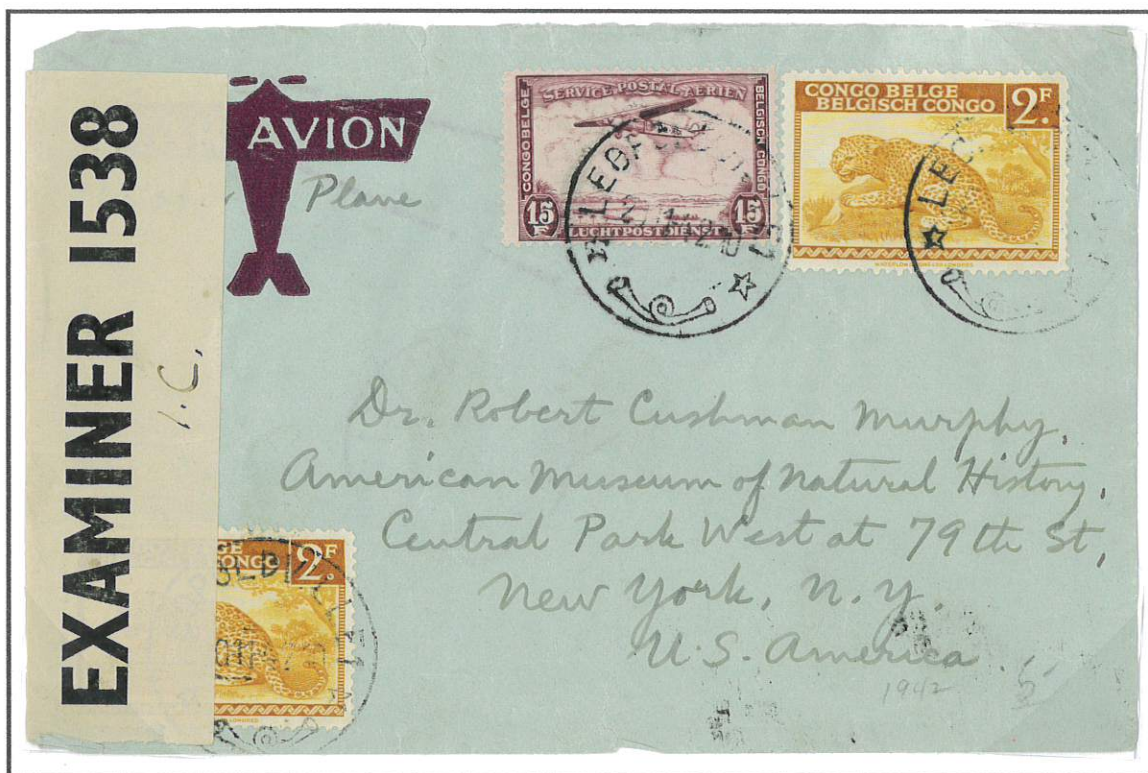 EXAMINER 1538
I.C.
AVION
Plane
SERVICE POSTAL AERIEN
CONGO BELGE
BELGISCH CONGO
15 F
15 F
LUCHTPOSTDIENST
CONGO BELGE
BELGISCH CONGO
2.F
LEO
Dr. Robert Cushman Murphy,
American Museum of Natural History,
Central Park West at 79th St,
New York, N.Y.
U.S. America
1942
GE
CONGO
2.F